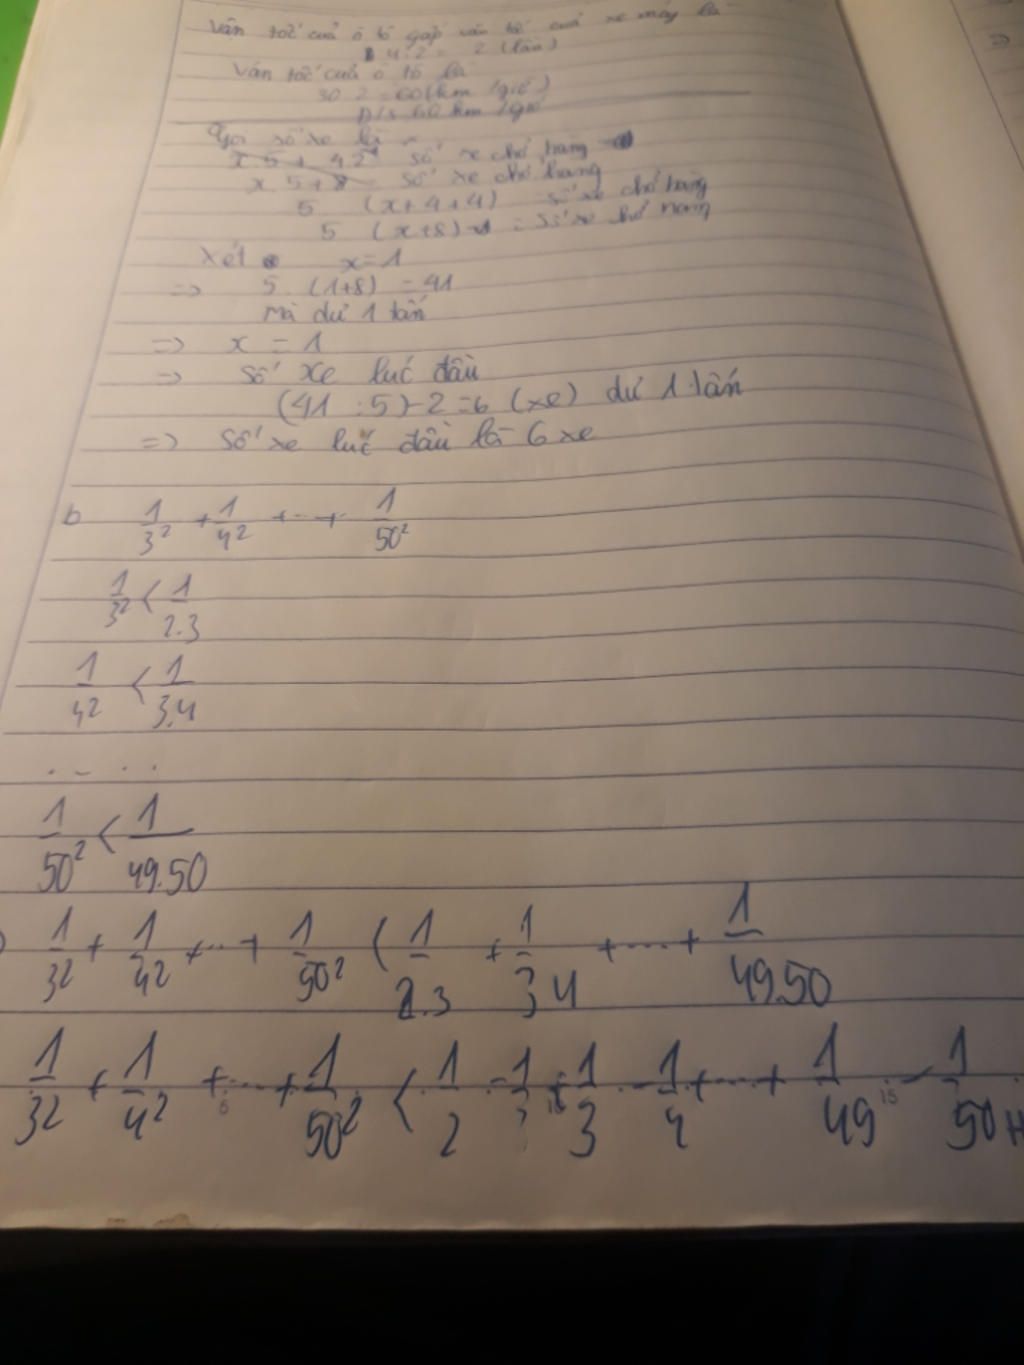 Vận tốc của ô tô gấp vận tốc của xe máy là
4:2 = 2 (lần)
Vận tốc của ô tô là
30.2 = 60 (km/giờ)
Đ/s 60 km/giờ
Gọi số xe là
x 5 + 42 số xe chở hàng
x 5 + 8 = số xe chở hàng
5 (x+4+4) số xe chở hàng
5 (x+8) = số xe chở hàng
Xét x=1
=> 5 (1+8) = 41
mà dư 1 tấn
=> x = 1
=> số xe lúc đầu
(41 :5) - 2 = 6 (xe) dư 1 tấn
=> số xe lúc đầu là 6 xe
b 1/3² + 1/4² + ... + 1/50²
1/3² < 1/2.3
1/4² < 1/3.4
....
1/50² < 1/49.50
1/3² + 1/4² + ... + 1/50² < 1/2.3 + 1/3.4 + .... + 1/49.50
1/3² + 1/4² + ... + 1/50² < 1/2 - 1/3 + 1/3 - 1/4 + ... + 1/49 - 1/50